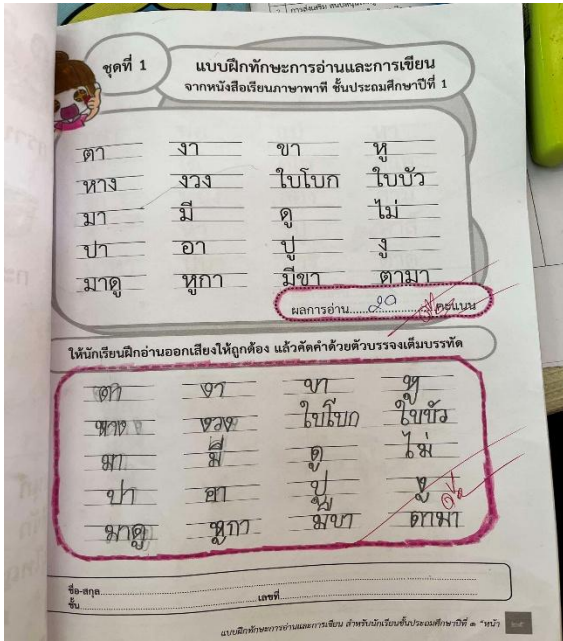 ชุดที่ 1
แบบฝึกทักษะการอ่านและการเขียน
จากหนังสือเรียนภาษาพาที ชั้นประถมศึกษาปีที่ 1
ตา งา ขา หู
หาง งวง ใบโบก ใบบัว
มา มี ดู ไม่
ปา อา ปู งู
มาดู หูกา มีขา ตามา
ผลการอ่าน......๒๐......คะแนน
ให้นักเรียนฝึกอ่านออกเสียงให้ถูกต้อง แล้วคัดคำด้วยตัวบรรจงเต็มบรรทัด
ตา งา ขา หู
หาง งวง ใบโบก ใบบัว
มา มี ดู ไม่
ปา อา ปู งู
มาดู หูกา มีขา ตามา
ชื่อ-สกุล
ชั้น เลขที่
แบบฝึกทักษะการอ่านและการเขียน สำหรับนักเรียนชั้นประถมศึกษาปีที่ ๑ "หน้า